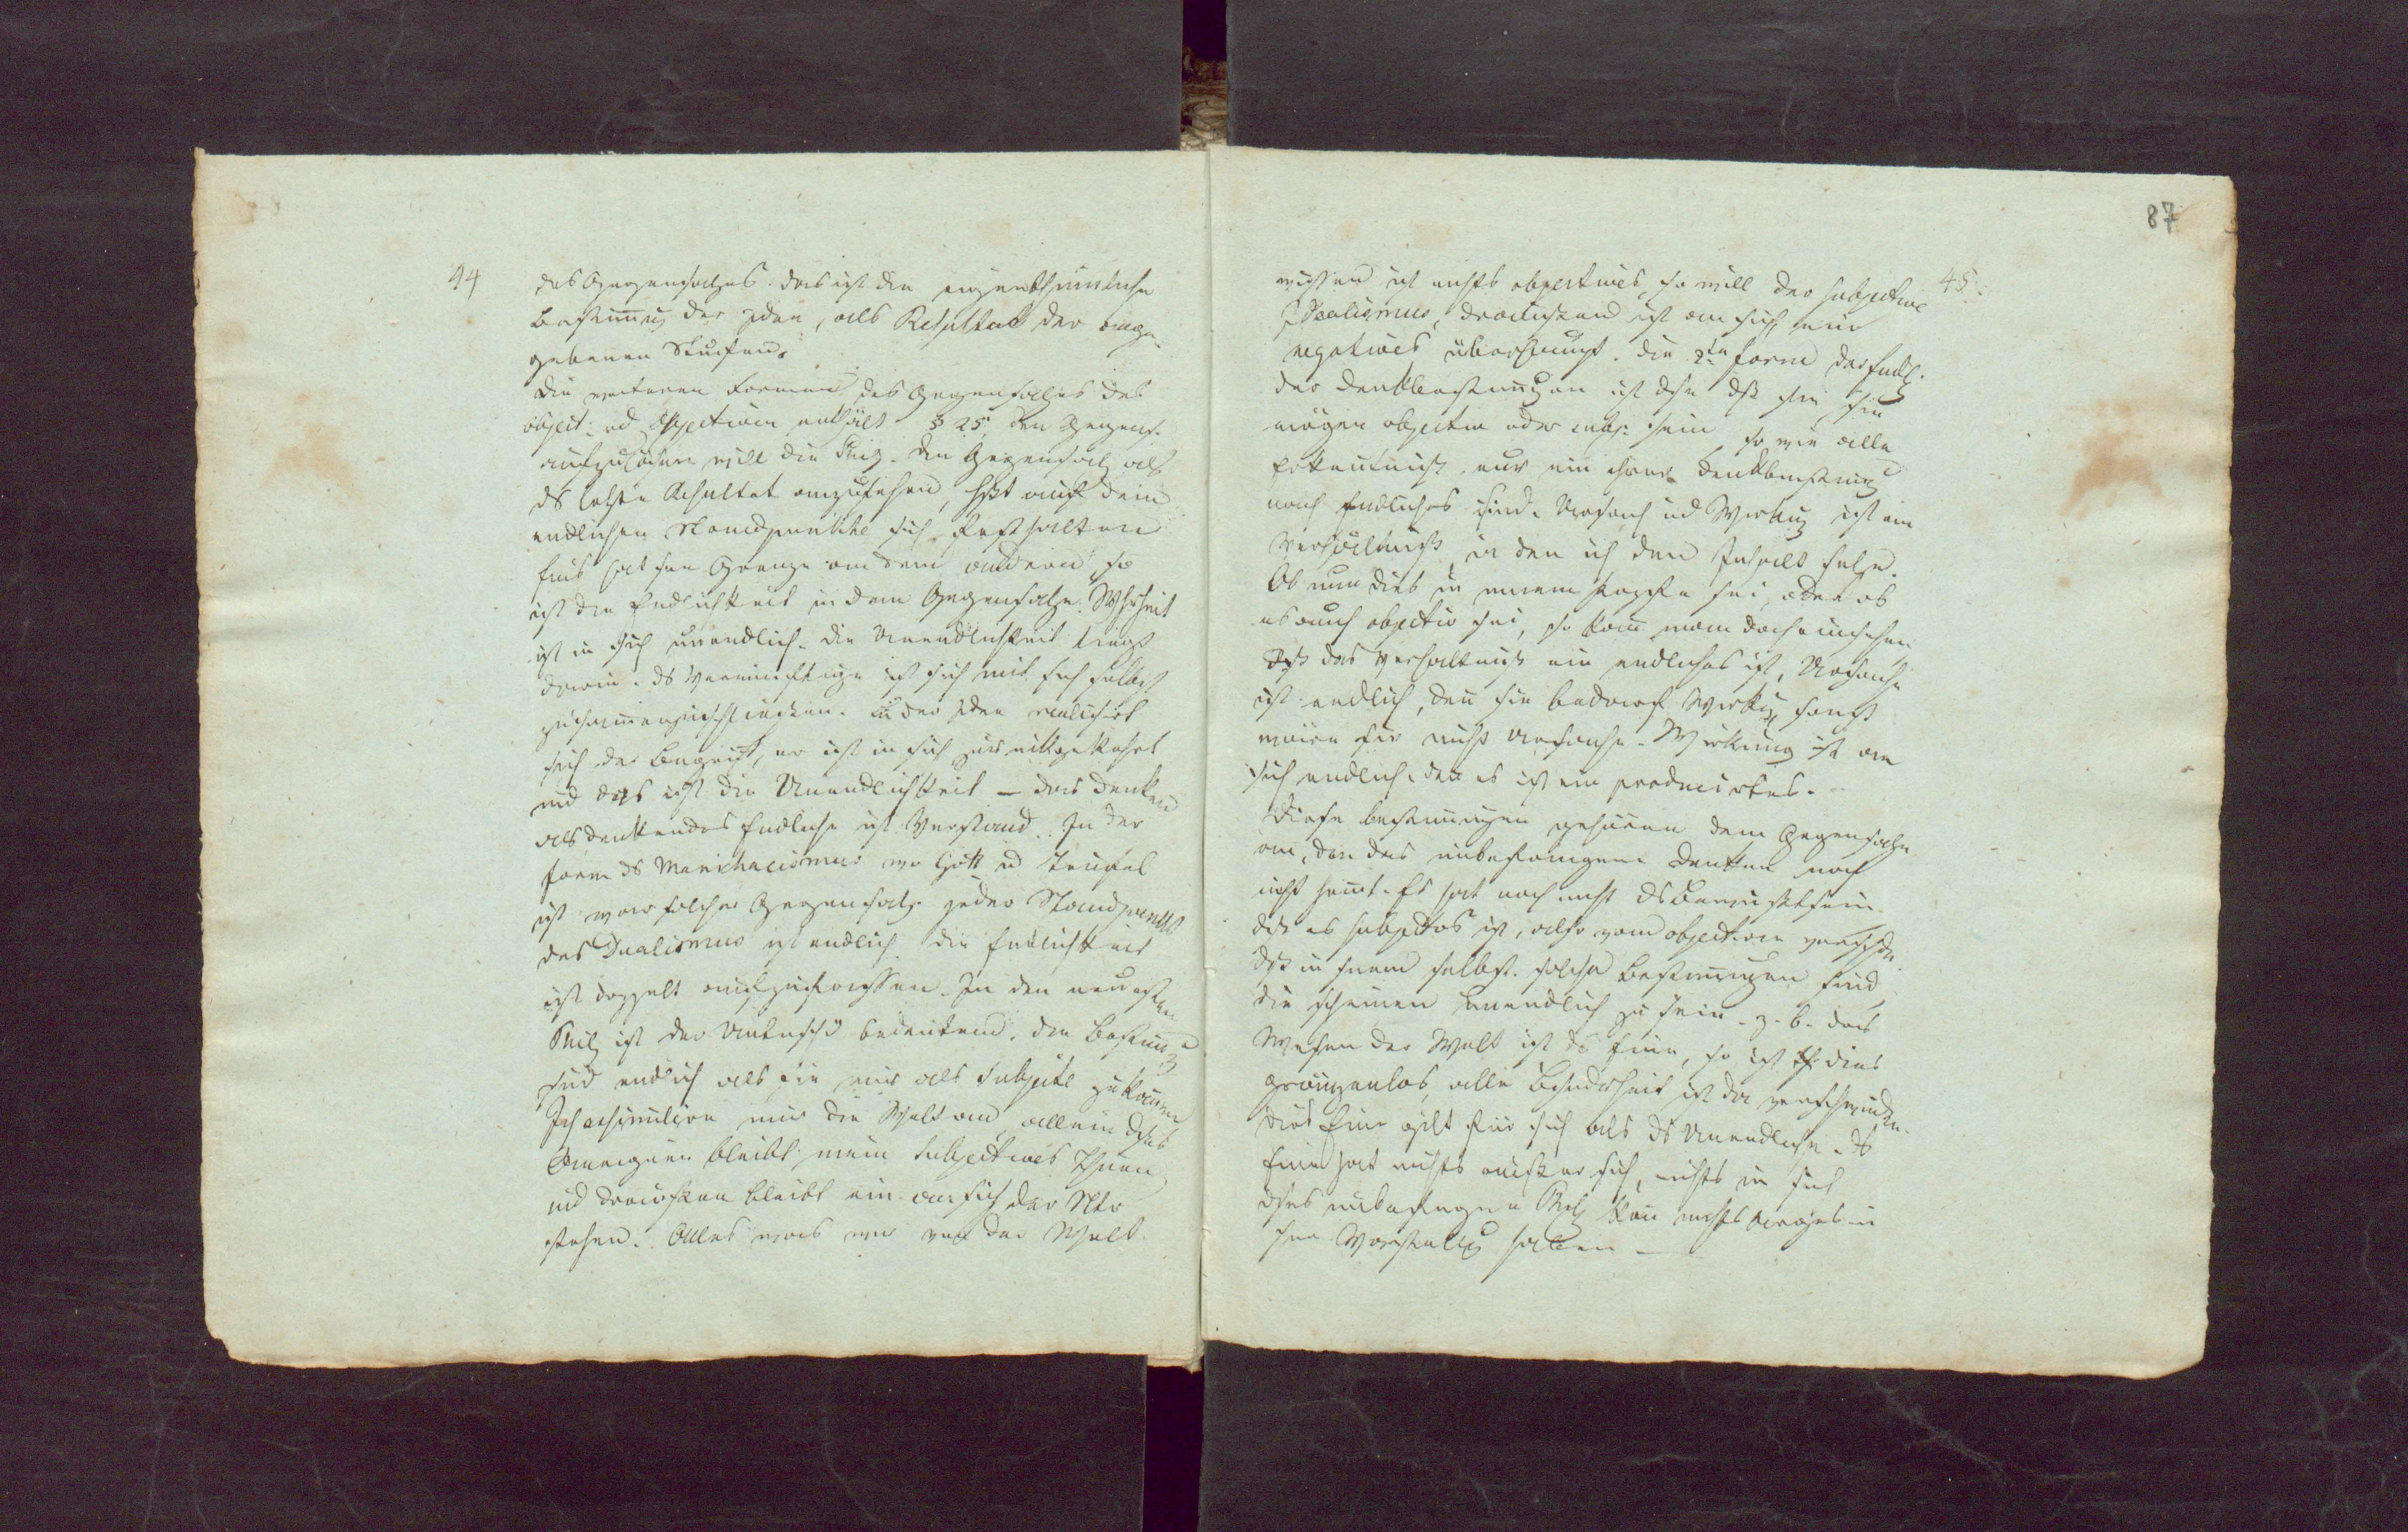 44
des Gegensatzes. das ist die eigenthümliche
Bestimung der Idee, als Resultat der ange-
gebenen Stufen.
Die weiteren Formen des Gegensatzes des
object. ud Subjectiven enthält § 25, den Gegens.
aufzulösen will die Phil. Den Gegensatz als
ds letzte Resultat anzusehen, heßt auf dem
endlichen Standpunkte sich festhalten
Eins hat sne Grenze an dem anderen, so
ist die Endlichkeit in dem Gegensatze. Whrheit
ist in sich unendlich. die Unendlichkeit liegt
darin. ds Vernünftige ist sich mit sich selbst
zusamenzuschließen. In der Idee realisirt
sich der Begriff, er ist in sich zurückgekehrt
und dies ist die Unendlichkeit – das denken
als denkendes Endliche ist Verstand. In der
Form ds Manichaeismus wo Gott ud Teufel
ist war solcher Gegensatz. jeder Standpunkt
des Dualismus ist endlich. die Endlichkeit
ist doppelt aufzufassen. In den neuesten
Phil ist der Untrschd bedeutend. die Bestimg
sind endlich als sie nur als Subject zukomen
Ich assimilire mir die Welt an, allein dses
Aneignen bleibt mein subjectives Thuen
und draussen bleibt ein an sich der Ntr
stehen. Alles was wir von der Welt
87
45.
wissen ist nichts objectives, so will der subjective
Idealismus, draussen ist an sich, ein
negatives überhaupt. die 2te Form der Endl.
der Denkbestimungen ist dse dß sie sie
mögen objectiv oder subj. sein, so wie alle
Erkentniß, nur ein Denkbestimg
nach Endliches sind. Ursach ud Wirkug ist ein
Verhältniß, in den ich den Inhalt setze.
Ob nun dies in meinem Kopfe sei, oder ob
es auch objectiv sei, so kan man doch einsehen
daß das Verhältniß ein endliches ist, Ursache
ist endlich, den sie bedarf Wirkug sonst
wäre sie nicht Ursache. Wirkung ist an
sich endlich den es ist ein producirtes.
Diese bestimungen gehören dem Gegensatze
an, den das unbefangene Denken noch
nicht kent. Es hat noch nicht ds Bewußtsein
das es subjectives ist, also vom objectiven verschdn.
dß in snem selbst. solche Bestimungen sind,
die scheinen unendlich zu sein. z. b. das
Wesen der Welt ist ds Eine, so ist dies
gränzenlos, alle Besondrheit ist da verschwunden.
dies Eine gilt für sich als ds Unendliche. ds
Eine hat nichts ausser sich, nichts in sich
dses unbefangene Phil kan nichts in
sne Vorstellg haben –